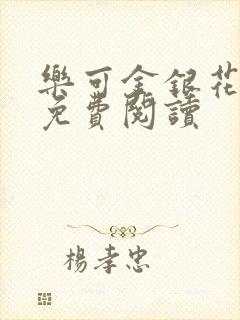 樂可金銀花
免費閱讀
楊孝忠